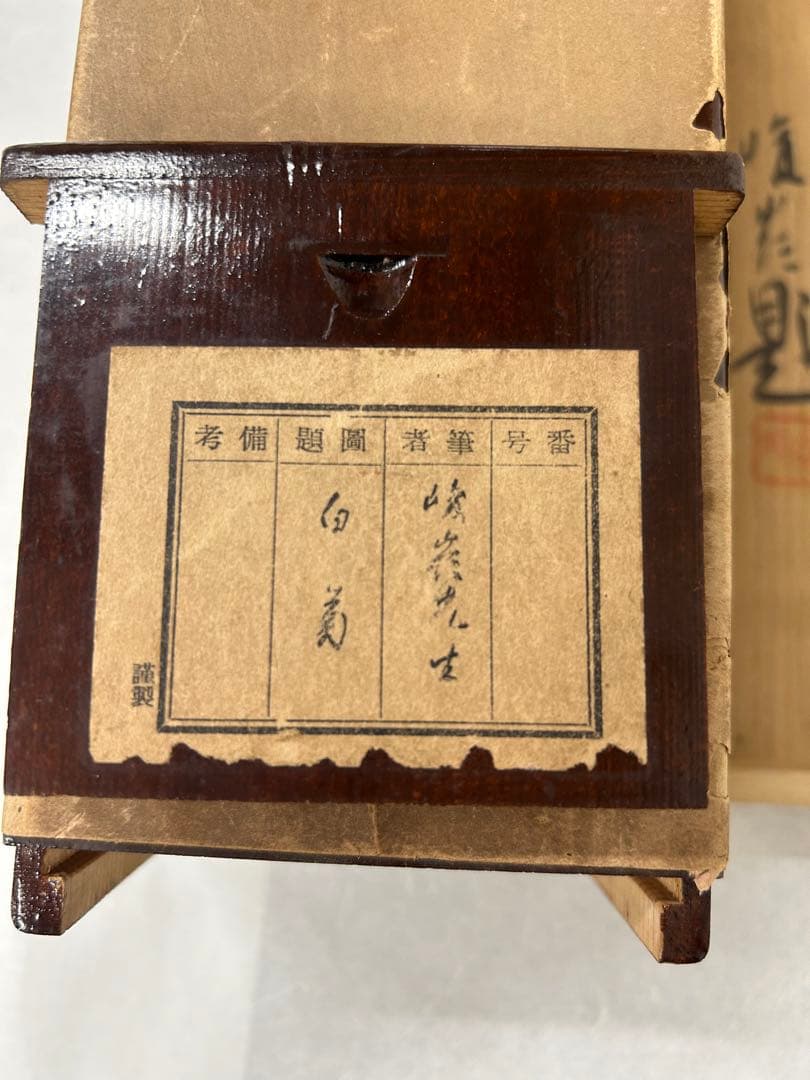 番号
筆者
峻嶺先生
圖題
白菊
備考
謹製
題